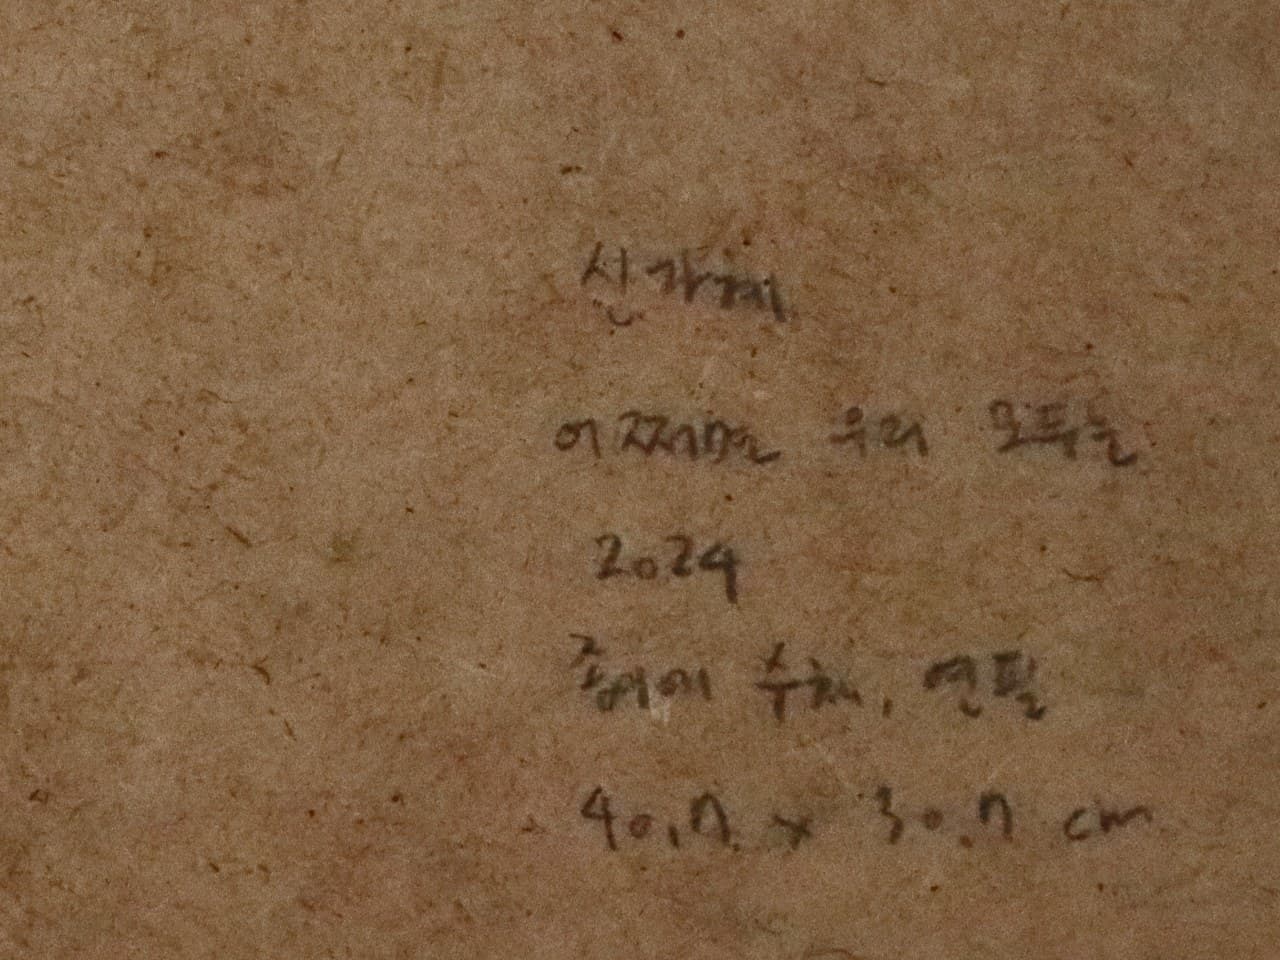 어쩌면 우리 모두는
2024
종이에 수채, 연필
40.7 x 30.7 cm